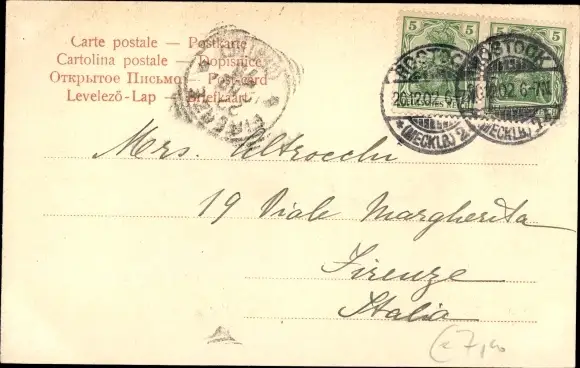 Carte postale — Postkarte
Cartolina postale — Dopisnice
Открытое Письмо — Postcard
Levelező-Lap — Briefkaart
5 5
ROSTOCK
20.12.02. 6-7N.
* (MECKLB) 2.
ROSTOCK
.12.02. 6-7N.
(MECKLB) 2.
FIRENZE
Mrs. Altrocchi
19 Viale Margherita
Firenze
Italia